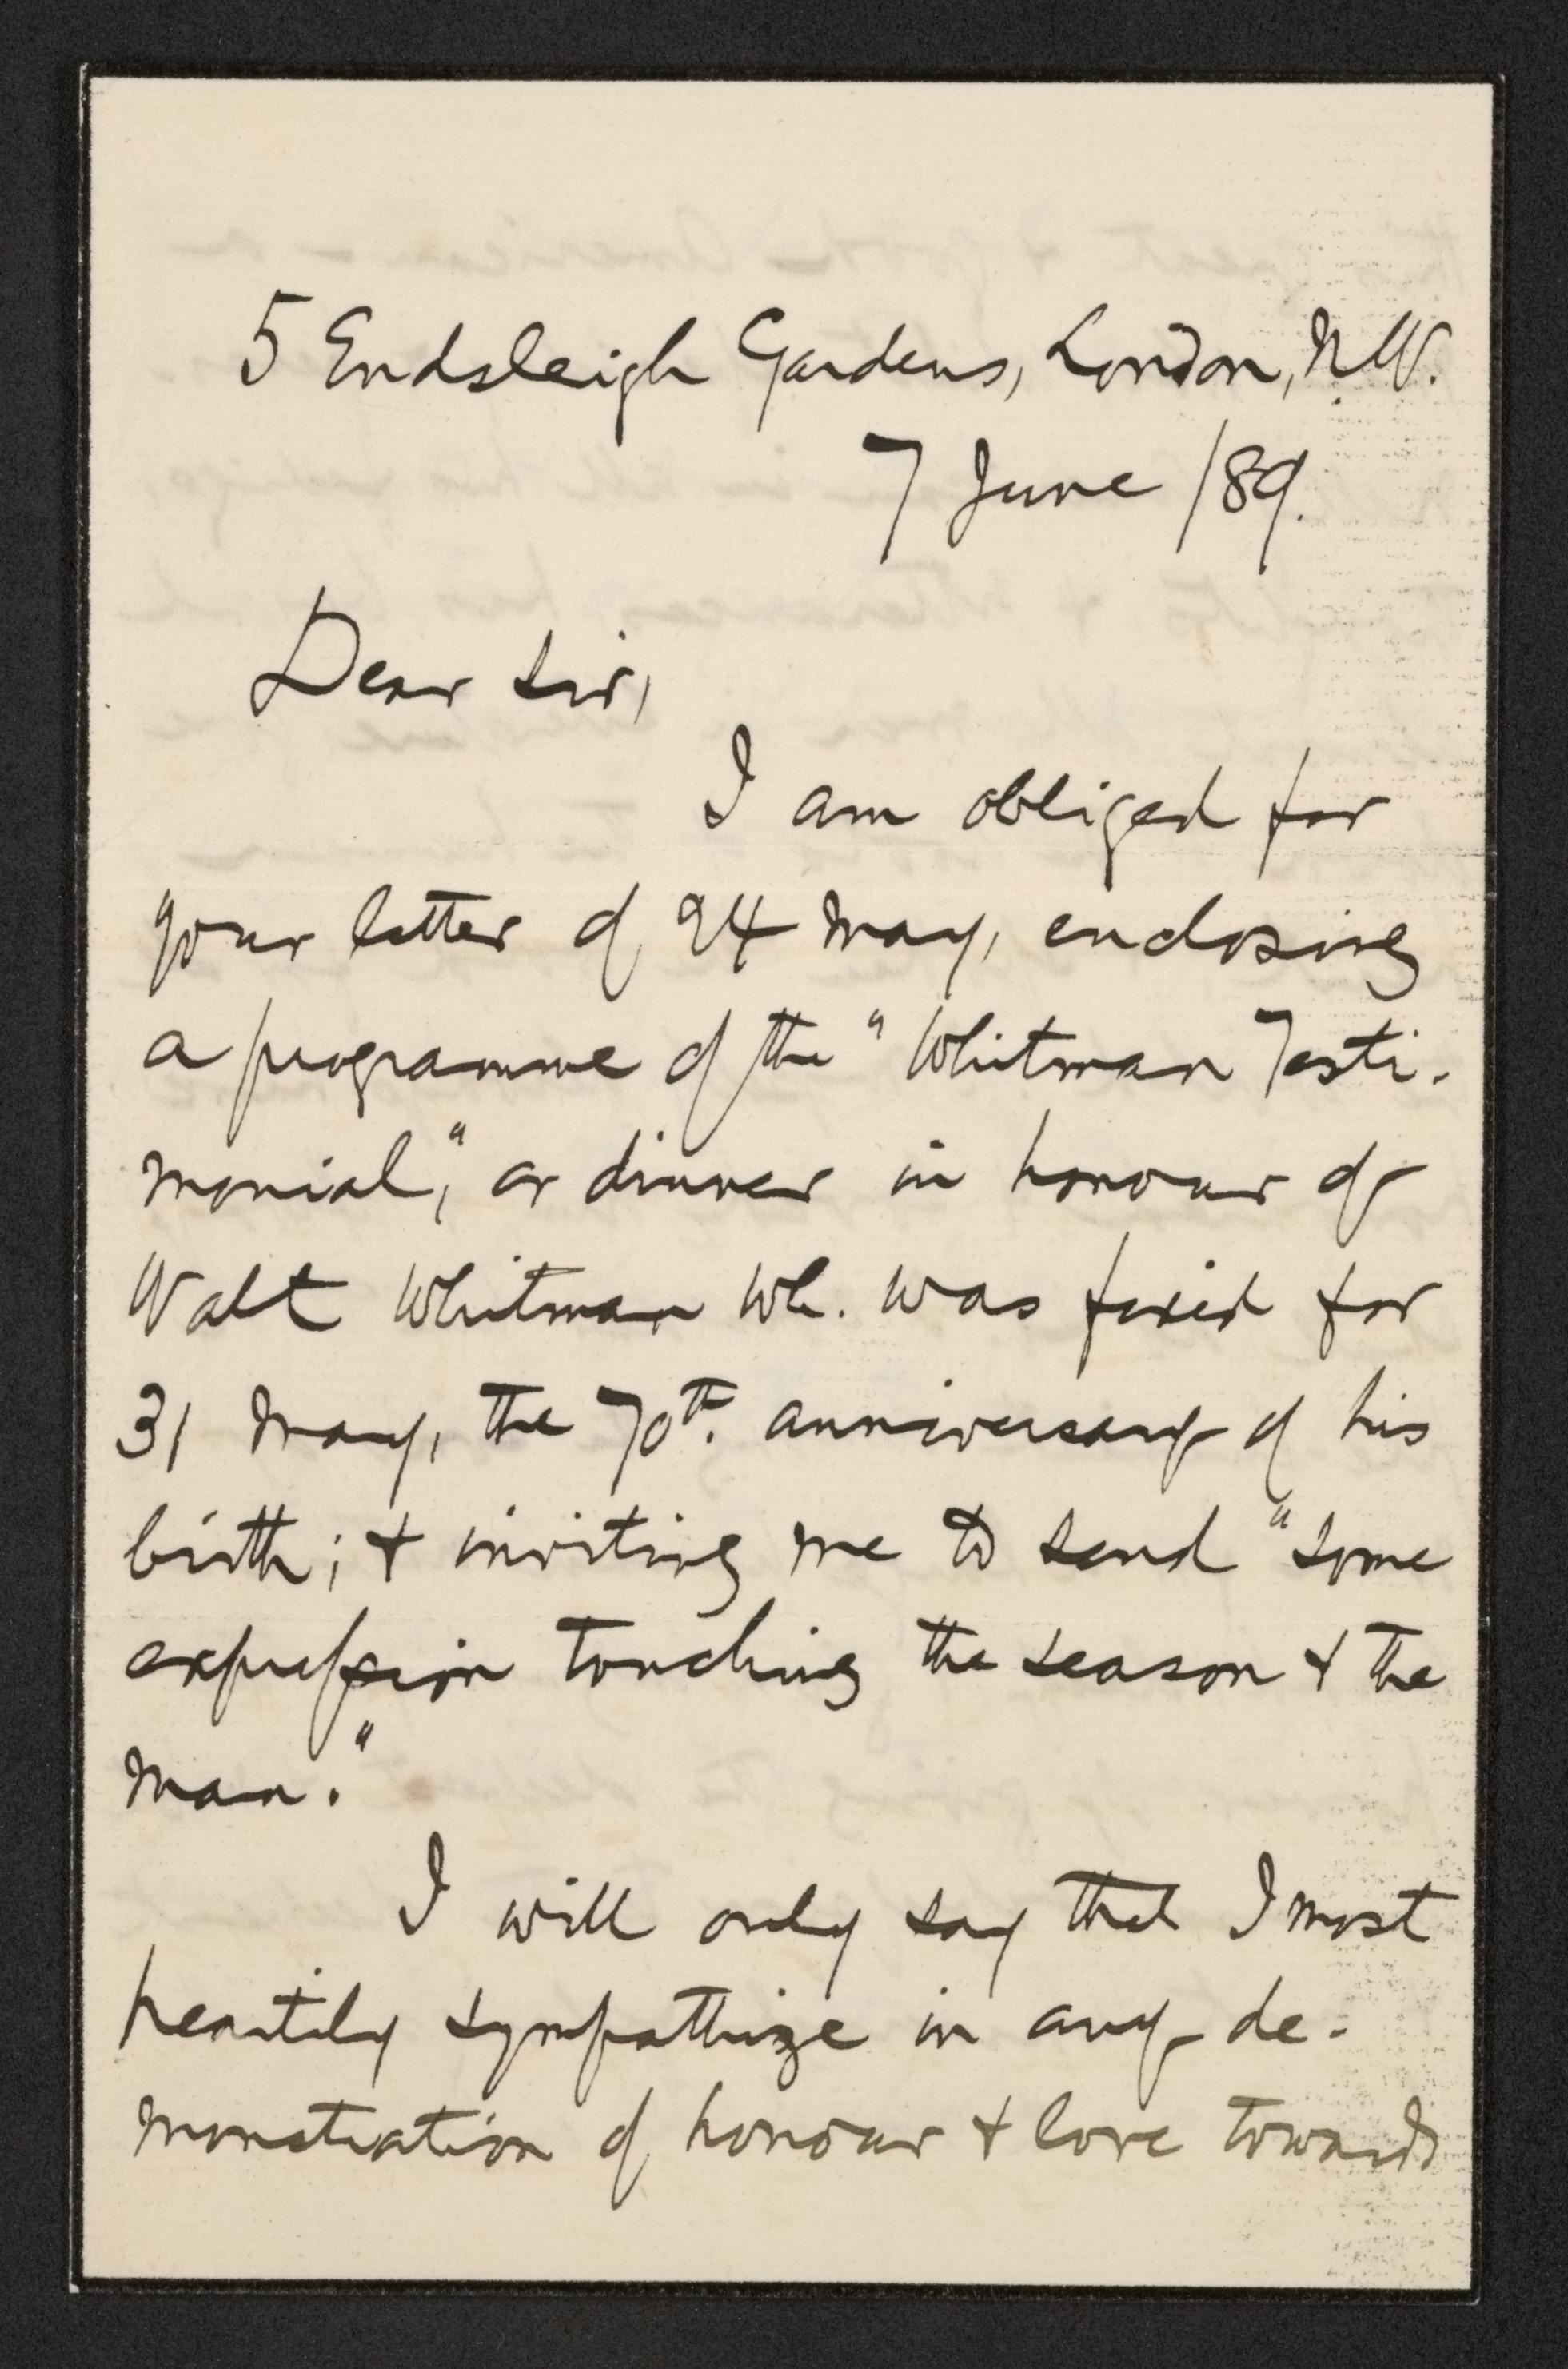 5 Endsleigh Gardens, London, N.W.
7 June /89.
Dear Sir,
I am obliged for
your letter of 24 May, enclosing
a programme of the "Whitman Testi-
monial", or dinner in honour of
Walt Whitman wh. was fixed for
31 May, the 70th. anniversary of his
birth; & inviting me to send "some
expression touching the season & the
man."
I will only say that I most
heartily sympathize in any de-
monstration of honour & love towards